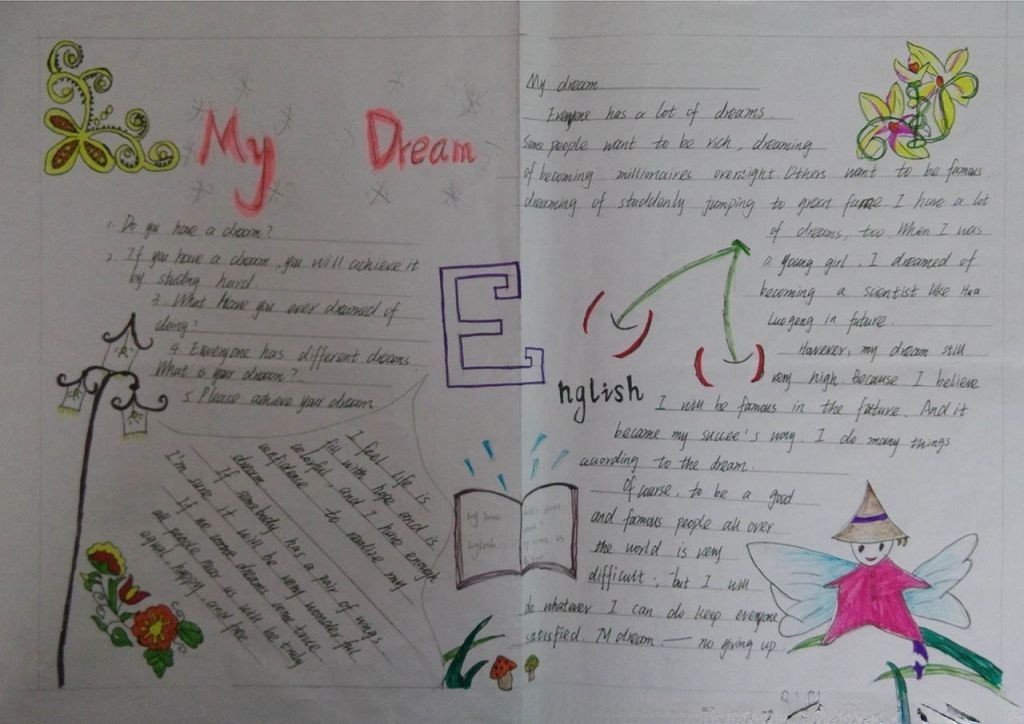 My Dream
1. Do you have a dream?
2. If you have a dream, you will achieve it
by studing hard.
3. What have you ever dreamed of
doing?
4. Everyone has different dreams.
What is your dream?
5 Please achieve your dream
I feel life is
fill with hope and is
colorful, and I have enough
confidence to realize my
dream.
If somebody has a pair of wings
I'm sure it will be very wonderful
If we come dreams come true
all people near us will be truly
equal, happy and free
English
My dream.
Everyone has a lot of dreams.
Some people want to be rich, dreaming
of becoming millionaires overnight. Others want to be famous,
dreaming of studdenly jumping to great fame. I have a lot
of dreams, too. When I was
a young girl, I dreamed of
becoming a scientist like Hua
Luogeng in future.
However, my dream still
very high. Because I believe
I will be famous in the future. And it
became my succee's way. I do many things
according to the dream.
Of course, to be a good
and famous people all over
the world is very
difficult, but I will
do whatever I can do keep everyone
satisfied. M dream — no giving up